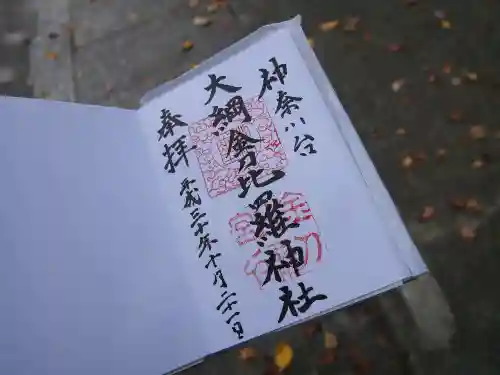 神奈川台
大綱金比羅神社
奉拝
平成三十年十月二十一日